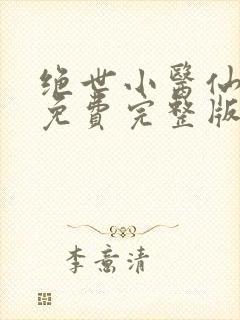 绝世小醫仙
免費完整版
李意清